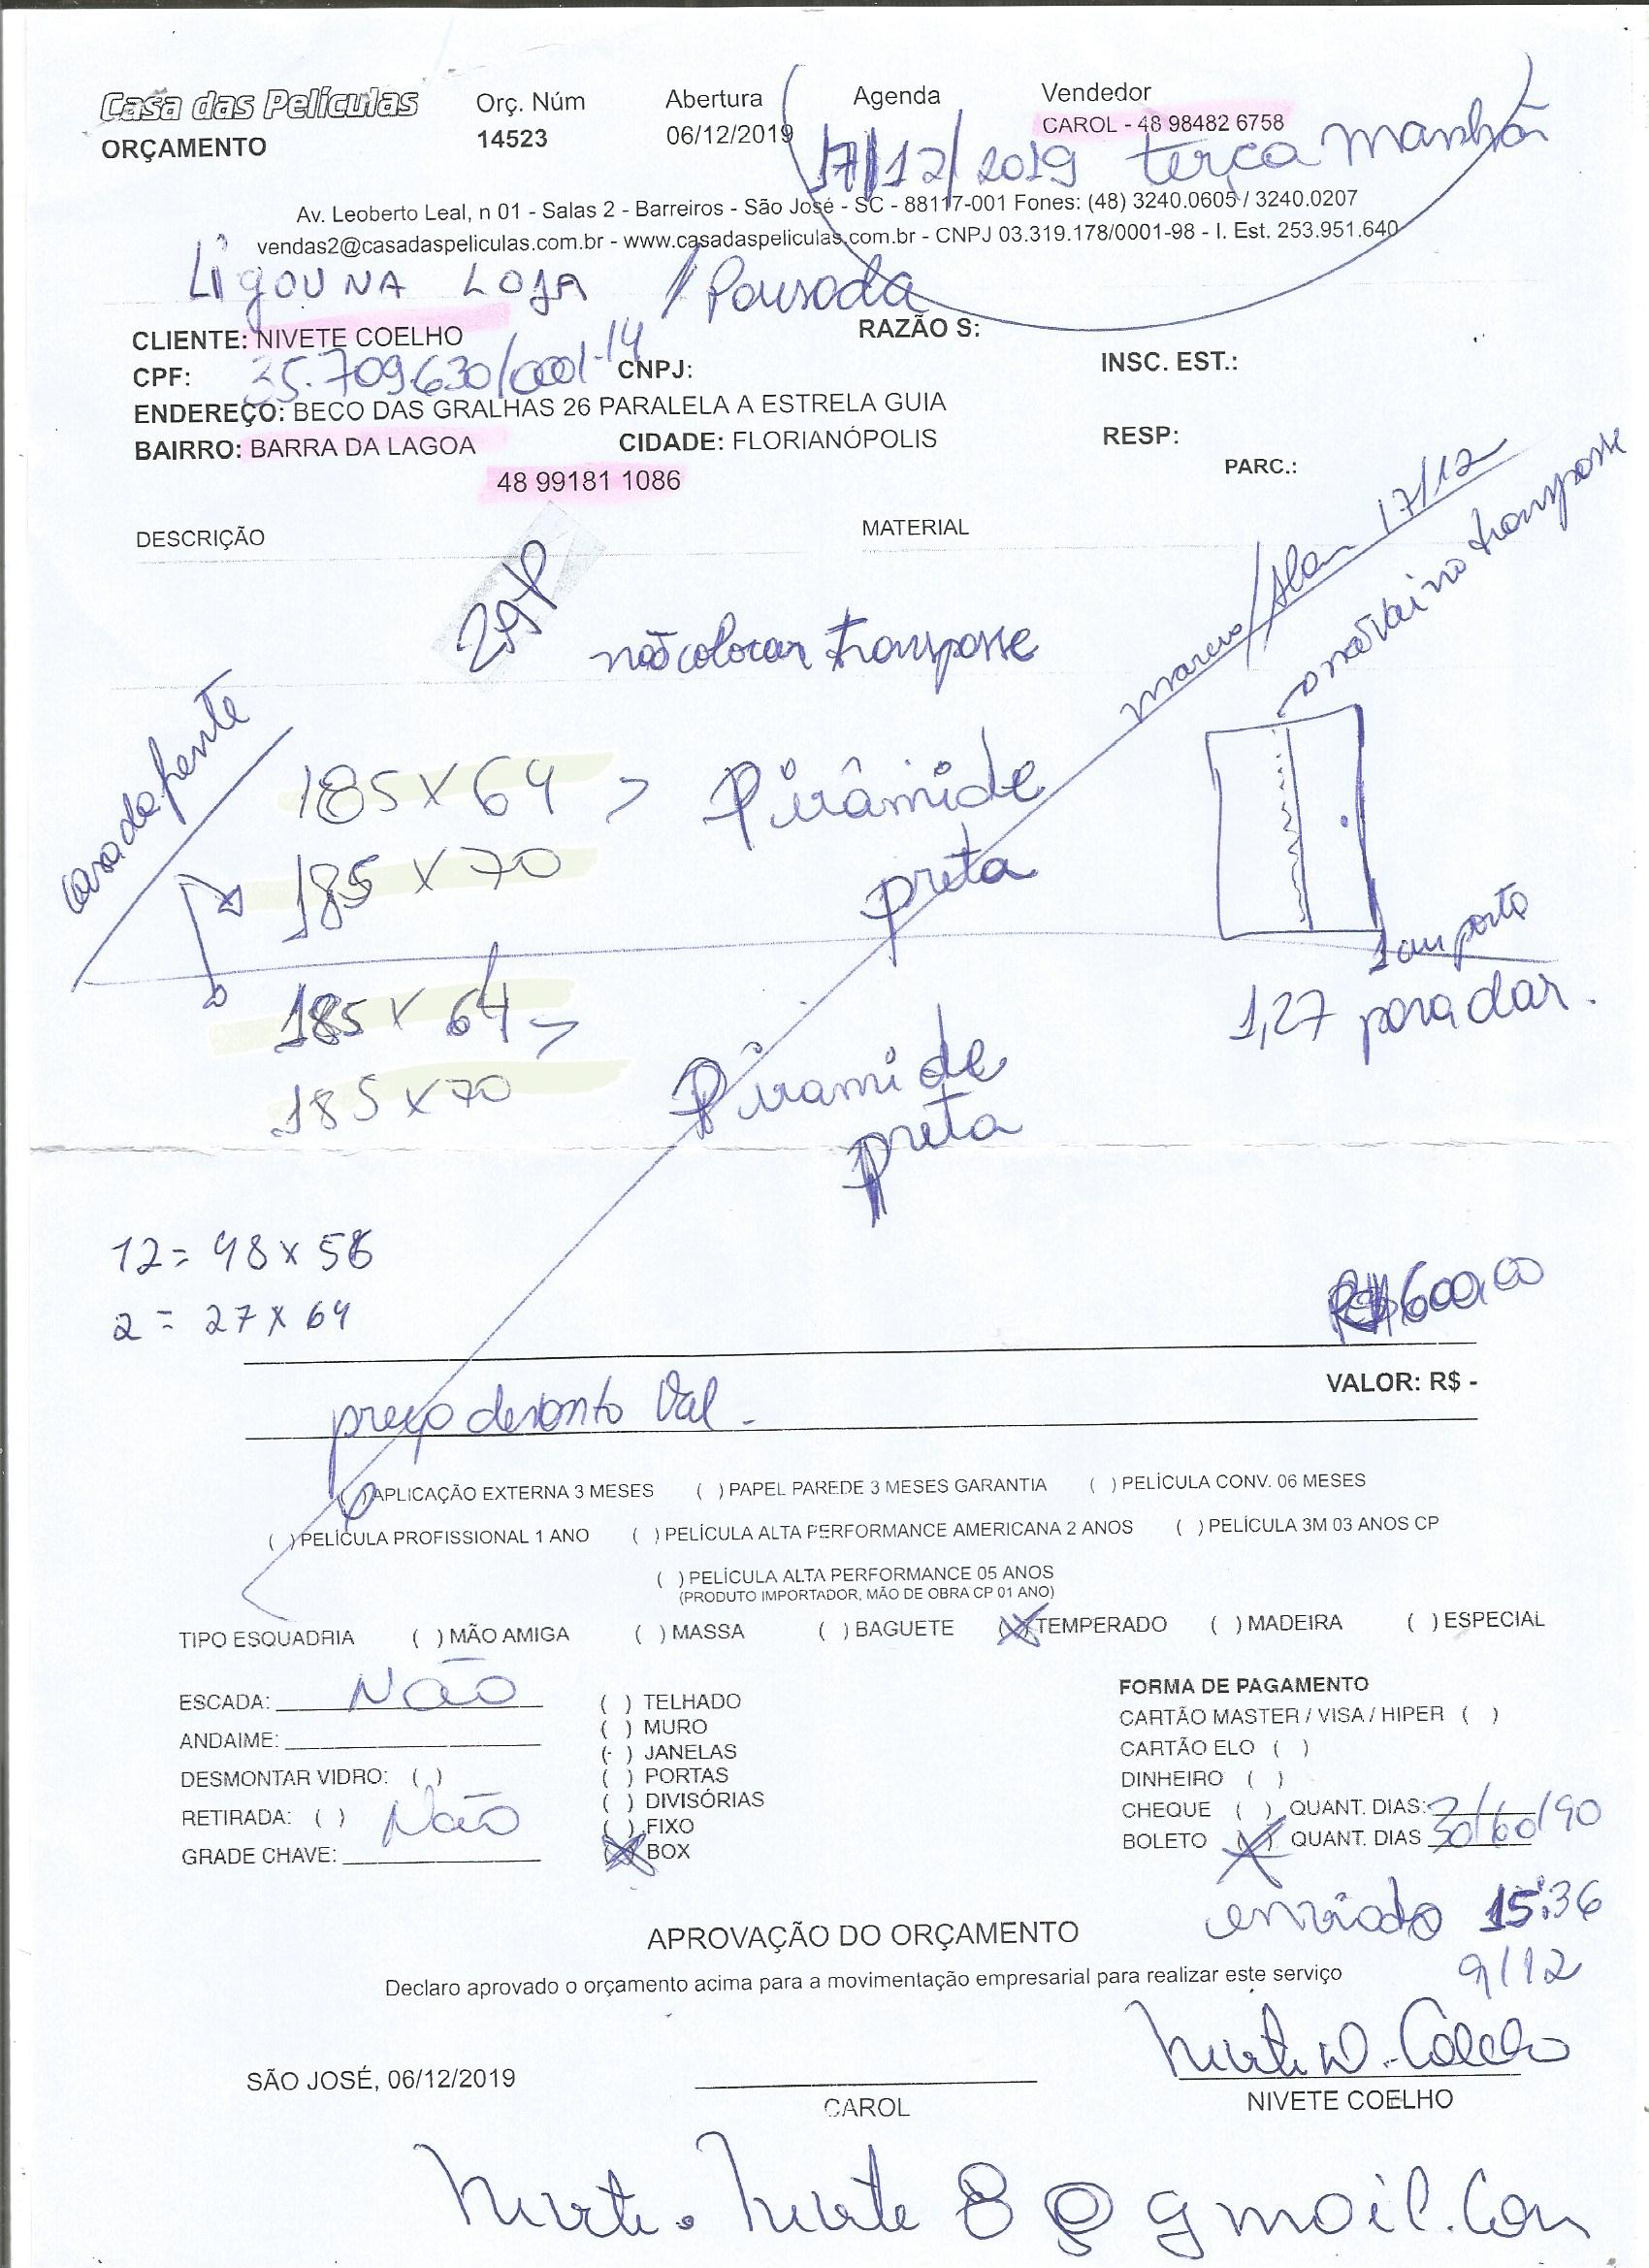 Casa das Películas
ORÇAMENTO
Orç. Núm
14523
Abertura
06/12/2019
Agenda
17/12/2019 terça manhã
Vendedor
CAROL - 48 98482 6758
Av. Leoberto Leal, n 01 - Salas 2 - Barreiros - São José - SC - 88117-001 Fones: (48) 3240.0605 / 3240.0207
vendas2@casadaspeliculas.com.br - www.casadaspeliculas.com.br - CNPJ 03.319.178/0001-98 - I. Est. 253.951.640
LigoU NA LOJA / Pousada
CLIENTE: NIVETE COELHO
RAZÃO S:
CPF: 35.709.630/0001-14 CNPJ:
INSC. EST.:
ENDEREÇO: BECO DAS GRALHAS 26 PARALELA A ESTRELA GUIA
BAIRRO: BARRA DA LAGOA
CIDADE: FLORIANÓPOLIS
RESP:
PARC.:
48 99181 1086
DESCRIÇÃO
MATERIAL
não colocar transpasse
17/12
transpasse
casa da frente
185 x 64 > Pirâmide
185 x 70
preta
1 em porta
1,27 para dar.
185 x 64 >
185 x 70
Piramide
preta
12 = 48 x 56
2 = 27 x 64
600,00
VALOR: R$ -
preço desconto Val.
( ) APLICAÇÃO EXTERNA 3 MESES ( ) PAPEL PAREDE 3 MESES GARANTIA ( ) PELÍCULA CONV. 06 MESES
( ) PELÍCULA PROFISSIONAL 1 ANO ( ) PELÍCULA ALTA PERFORMANCE AMERICANA 2 ANOS ( ) PELÍCULA 3M 03 ANOS CP
( ) PELÍCULA ALTA PERFORMANCE 05 ANOS
(PRODUTO IMPORTADOR, MÃO DE OBRA CP 01 ANO)
TIPO ESQUADRIA ( ) MÃO AMIGA ( ) MASSA ( ) BAGUETE (X) TEMPERADO ( ) MADEIRA ( ) ESPECIAL
ESCADA: Não
ANDAIME:
DESMONTAR VIDRO: ( )
RETIRADA: ( ) Não
GRADE CHAVE:
( ) TELHADO
( ) MURO
( ) JANELAS
( ) PORTAS
( ) DIVISÓRIAS
( ) FIXO
(X) BOX
FORMA DE PAGAMENTO
CARTÃO MASTER / VISA / HIPER ( )
CARTÃO ELO ( )
DINHEIRO ( )
CHEQUE ( ) QUANT. DIAS:
BOLETO (X) QUANT. DIAS 30/60/90
enviado 15:36
9/12
APROVAÇÃO DO ORÇAMENTO
Declaro aprovado o orçamento acima para a movimentação empresarial para realizar este serviço
SÃO JOSÉ, 06/12/2019
CAROL
Coelho
NIVETE COELHO